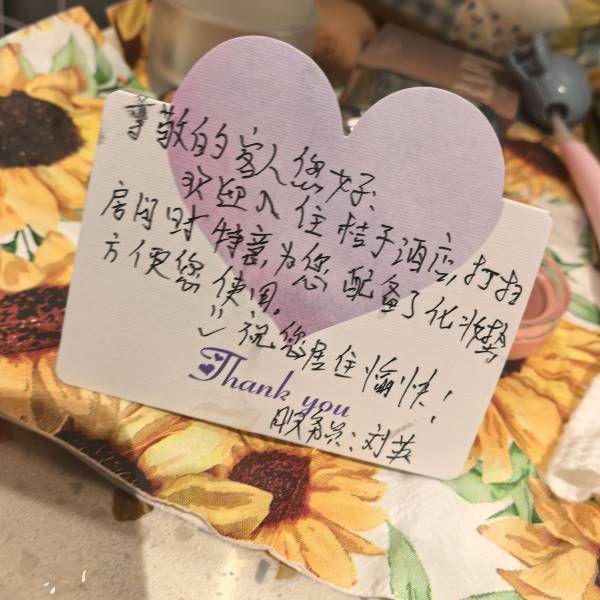 尊敬的客人您好：
欢迎入住桔子酒店，打扫
房间时特意为您配备了化妆垫，
方便您使用，
祝您居住愉快！
Thank you
服务员：刘英